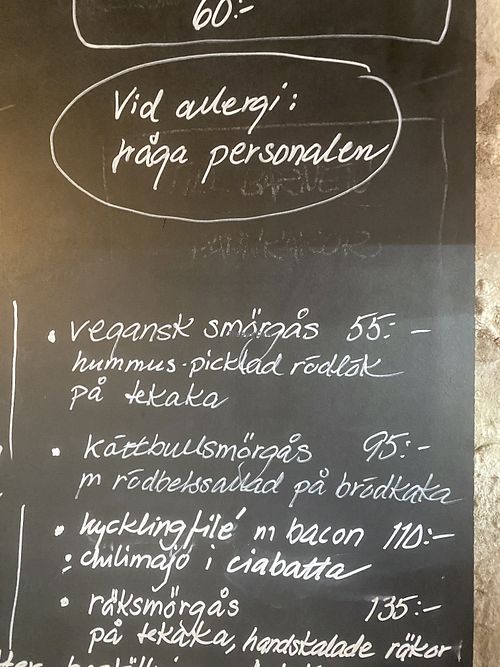 60:-
Vid allergi:
fråga personalen
• vegansk smörgås 55:-
hummus-picklad rödlök
på tekaka
• köttbullsmörgås 95:-
m rödbetssallad på brödkaka
• kycklingfilé m bacon 110:-
: chilimajö i ciabatta
• räksmörgås 135:-
på tekaka, handskalade räkor